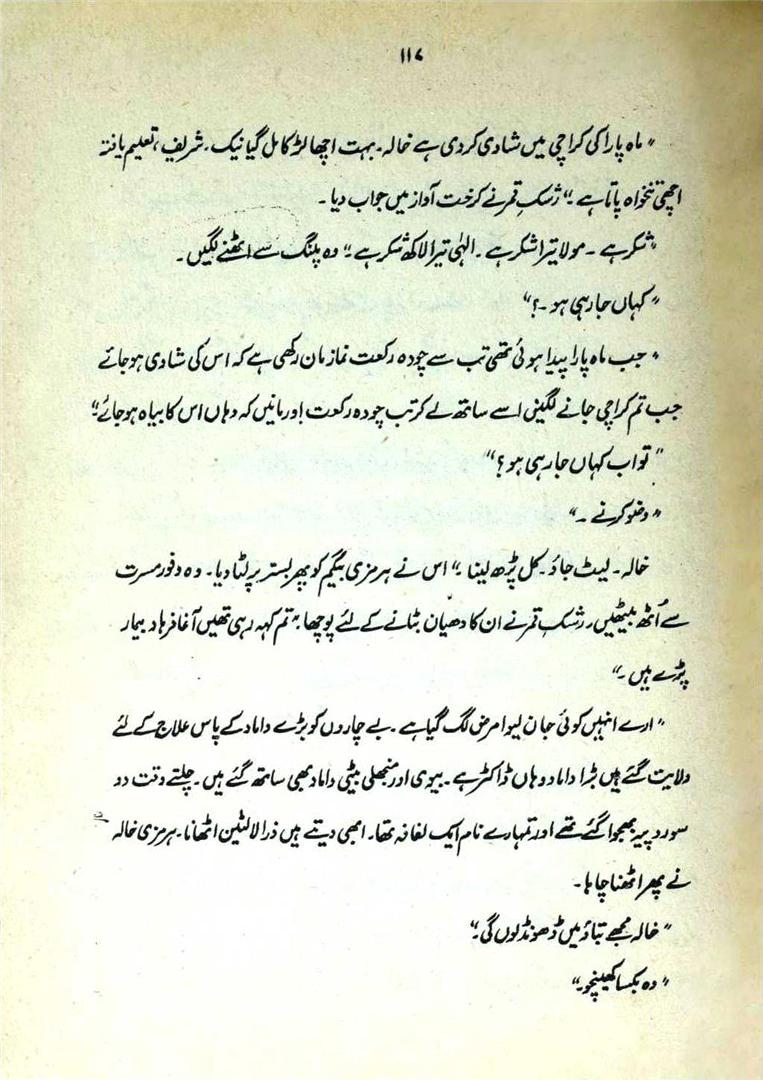 ۱۱۷
"ماہ پارا کی کراچی میں شادی کر دی ہے خالہ۔ بہت اچھا لڑکا مل گیا نیک۔ شریف، تعلیم یافتہ
اچھی تنخواہ پاتا ہے۔" رشکِ قمر نے کرخت آواز میں جواب دیا۔
"شکر ہے۔ مولا تیرا شکر ہے۔ الٰہی تیرا لاکھ شکر ہے۔" وہ پلنگ سے اٹھنے لگیں۔
"کہاں جا رہی ہو۔؟"
"جب ماہ پارا پیدا ہوئی تھی تب سے چودہ رکعت نماز مان رکھی ہے کہ اس کی شادی ہو جائے
جب تم کراچی جانے لگیں اسے ساتھ لے کر تب چودہ رکعت اور مانیں کہ وہاں اس کا بیاہ ہو جائے"
"تو اب کہاں جا رہی ہو؟"
"وضو کرنے۔"
خالہ۔ لیٹ جاؤ۔ کل پڑھ لینا۔" اس نے ہرمزی بیگم کو پھر بستر پر لٹا دیا۔ وہ وفورِ مسرت
سے اُٹھ بیٹھیں۔ رشکِ قمر نے ان کا دھیان بٹانے کے لئے پوچھا "تم کہہ رہی تھیں آغا فرہاد بیمار
پڑے ہیں۔"
"ارے انہیں کوئی جان لیوا مرض لگ گیا ہے۔ بے چاروں کو بڑے داماد کے پاس علاج کے لئے
ولایت گئے ہیں بڑا داماد وہاں ڈاکٹر ہے۔ بیوی اور منجھلی بیٹی داماد بھی ساتھ گئے ہیں۔ چلتے وقت دو
سو روپیہ بھجوا گئے تھے اور تمہارے نام ایک لفافہ تھا۔ ابھی دیتے ہیں ذرا لالٹین اٹھانا۔ ہرمزی خالہ
نے پھر اٹھنا چاہا۔
"خالہ مجھے بتاؤ میں ڈھونڈ لوں گی۔"
"وہ بکسا کھینچو۔"